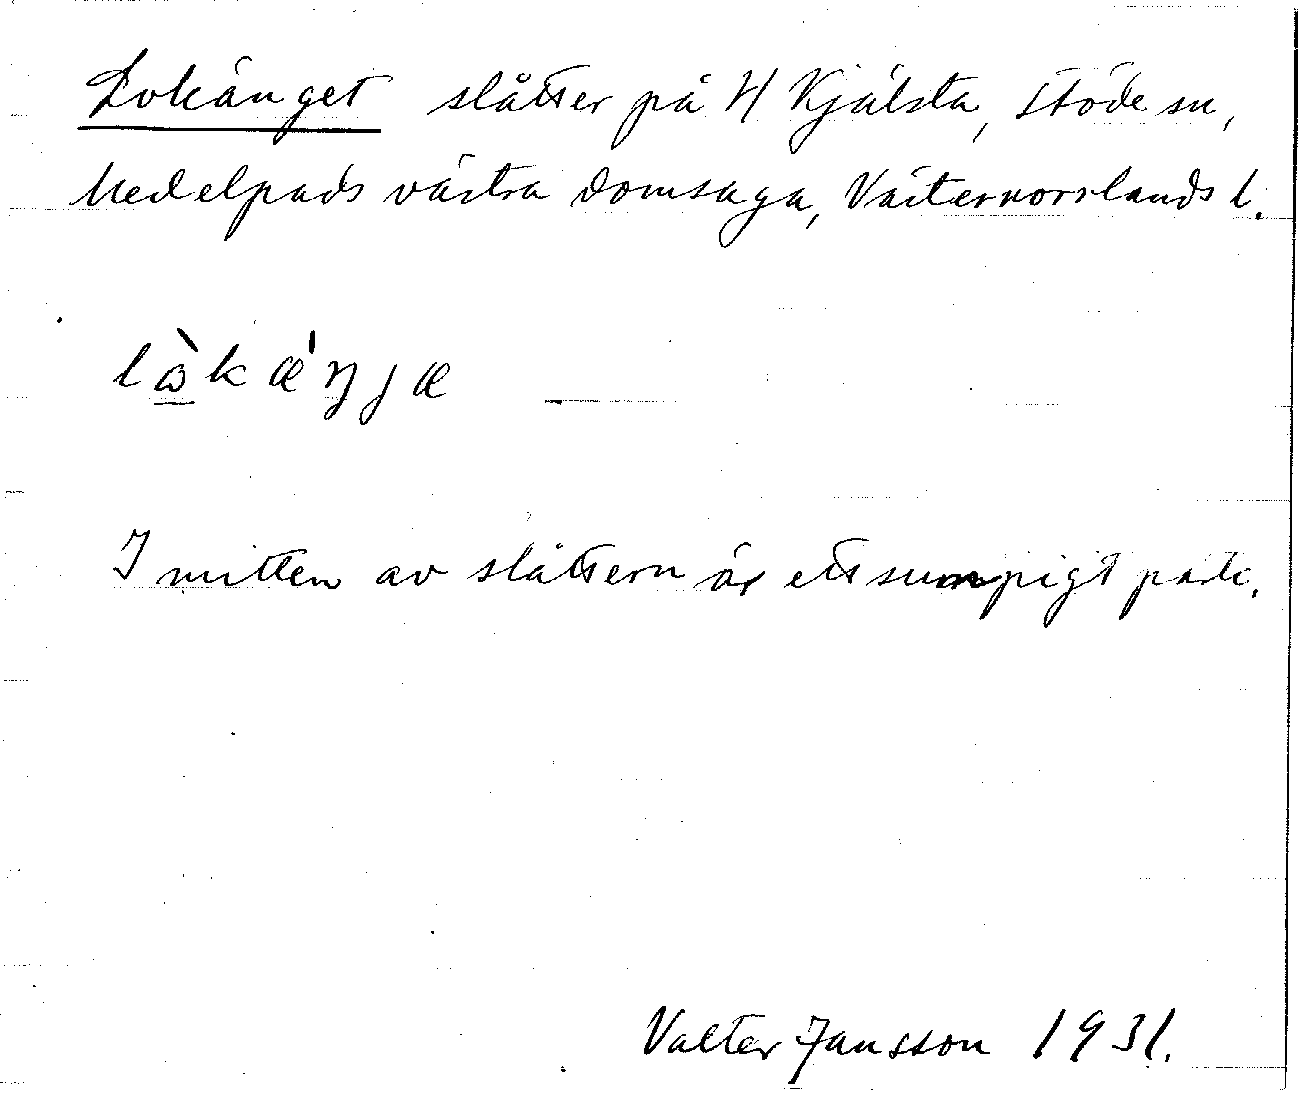 Lokänget slåtter på H Kjälsta, Stöde sn,
Medelpads västra domsaga, Västernorrlands l.
lò̲kæ'ŋjæ
I mitten av slåttern är ett sumpigt parti.
Valter Jansson 1931.